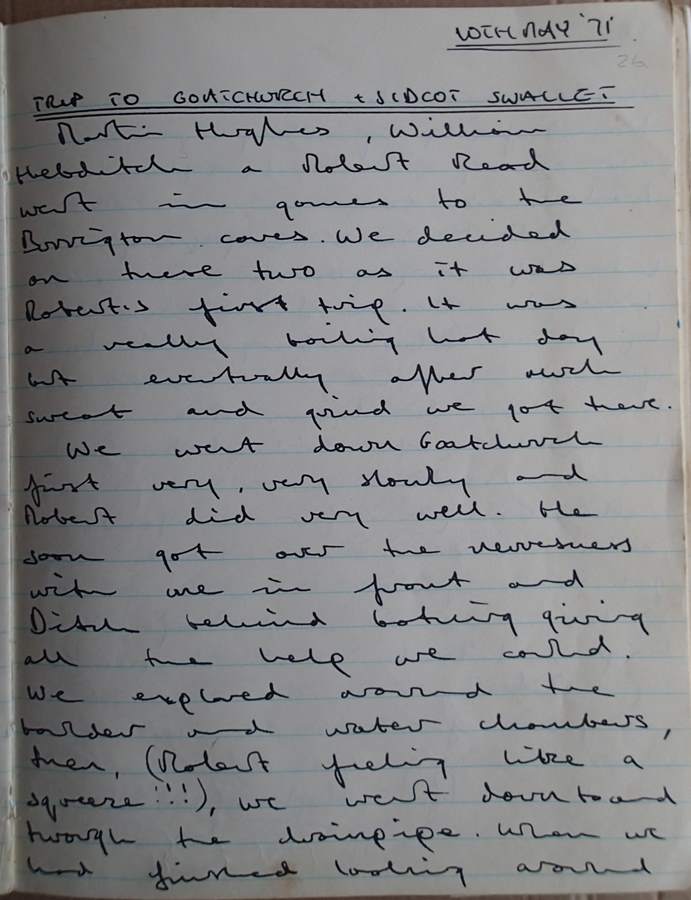 10TH MAY '71
26
TRIP TO GOATCHURCH + SIDCOT SWALLET
Martin Hughes, William
Hebditch a Robert Read
went in games to the
Burrington caves. We decided
on these two as it was
Robert's first trip. It was
a really boiling hot day
but eventually after much
sweat and grind we got there.
We went down Goatchurch
first very, very slowly and
Robert did very well. He
soon got over the nervesness
with me in front and
Ditch behind bothing giving
all the help we could.
We explored around the
boulder and water chambers,
then, (Robert feeling like a
squeeze!!!), we went down to and
through the drainpipe. When we
had finished looking around